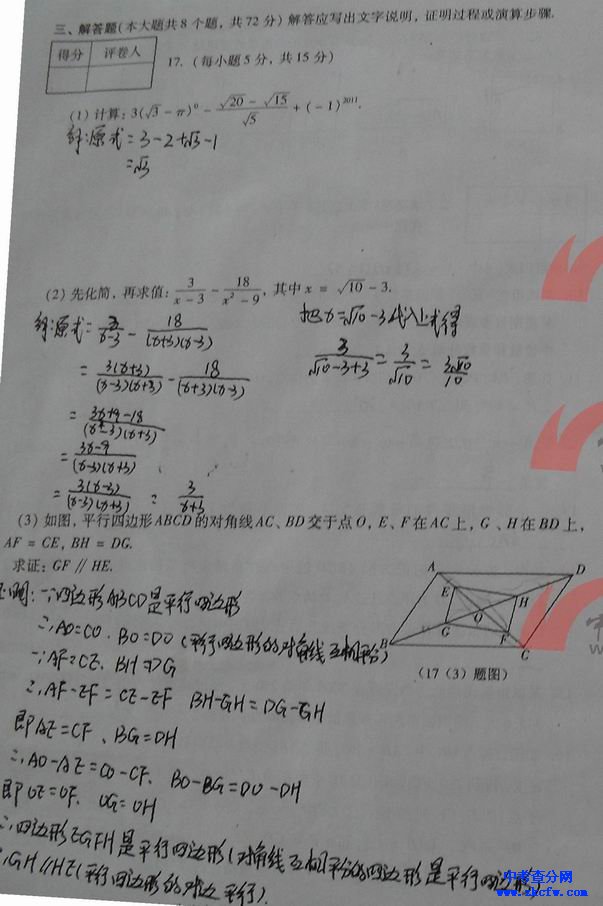 三、解答题(本大题共8个题,共72分)解答应写出文字说明,证明过程或演算步骤.
得分 评卷人
17.(每小题5分,共15分)
(1)计算:3(√3-π)⁰-(√20-√15)/√5+(-1)²⁰¹¹.
解:原式=3-2+√3-1
=√3
(2)先化简,再求值:3/(x-3)-18/(x²-9),其中x=√10-3.
解:原式=3/(x-3)-18/((x+3)(x-3))
=3(x+3)/((x-3)(x+3))-18/((x+3)(x-3))
=(3x+9-18)/((x-3)(x+3))
=(3x-9)/((x-3)(x+3))
=3(x-3)/((x-3)(x+3)) = 3/(x+3)
把x=√10-3代入上式得
3/(√10-3+3)=3/√10=3√10/10
(3)如图,平行四边形ABCD的对角线AC、BD交于点O,E、F在AC上,G、H在BD上,
AF=CE,BH=DG.
求证:GF∥HE.
A D E H O G F B C
(17(3)题图)
证明:∵四边形ABCD是平行四边形
∴AO=CO.BO=DO(平行四边形的对角线互相平分)
∵AF=CE.BH=DG
∴AF-EF=CE-EF BH-GH=DG-GH
即AE=CF、BG=DH
∴AO-AE=CO-CF.BO-BG=DO-DH
即OE=OF.OG=OH
∴四边形EGFH是平行四边形(对角线互相平分的四边形是平行四边形)
∴GH∥HE(平行四边形的对边平行).
中考查分网
www.zkcfw.com